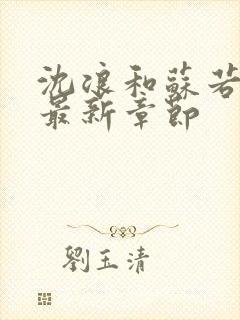 沈浪和蘇若
最新章節
劉玉清